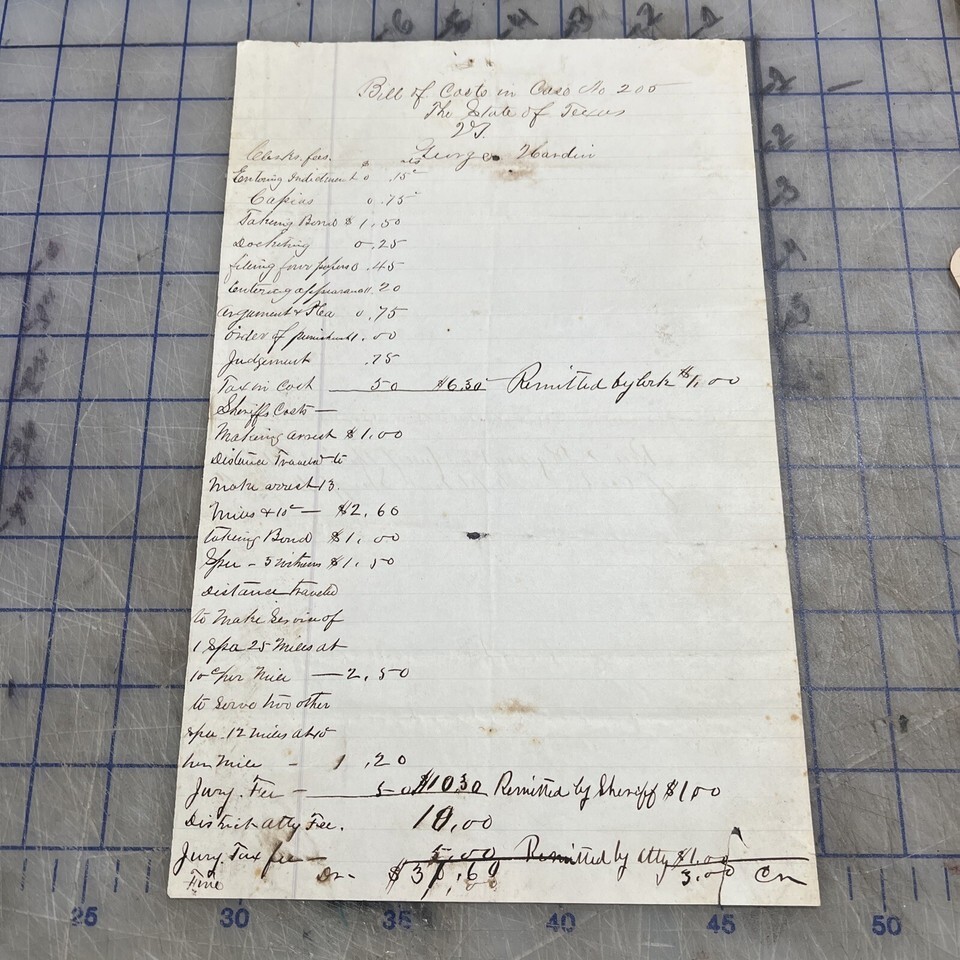 Bill of Costs in Case No 200
The State of Texas
VS.
George Hardin
Clerks fees. $ cts
Entering Indictment 0 .15
Capias 0.75
Taking Bond $1,50
Docketing 0.25
filing four papers 0.45
Entering appearance .20
argument & Plea 0.75
order of punishment 1.00
Judgement .75
Tax in Cost 50 $6.30 Remitted by Clerk $1,00
Sheriffs Costs —
Making arrest $1.00
Distance Traveled to
Make arrest 13.
Miles — $2,60
taking Bond $1,00
Spa - 3 witness $1,50
distance traveled
to Make Service of
1 Spa 25 Miles at
10c per Mile — 2,50
to Serve two other
Spa. 12 miles at 10
per Mile - 1,20
Jury. Fee — 50 $10.30 Remitted by Sheriff $1.00
District atty Fee. 10,00
Jury. Tax fee — 5.00 Remitted by Atty $1.00
Fine Dr- $ 3.00 Cr
25 30 35 40 45 50